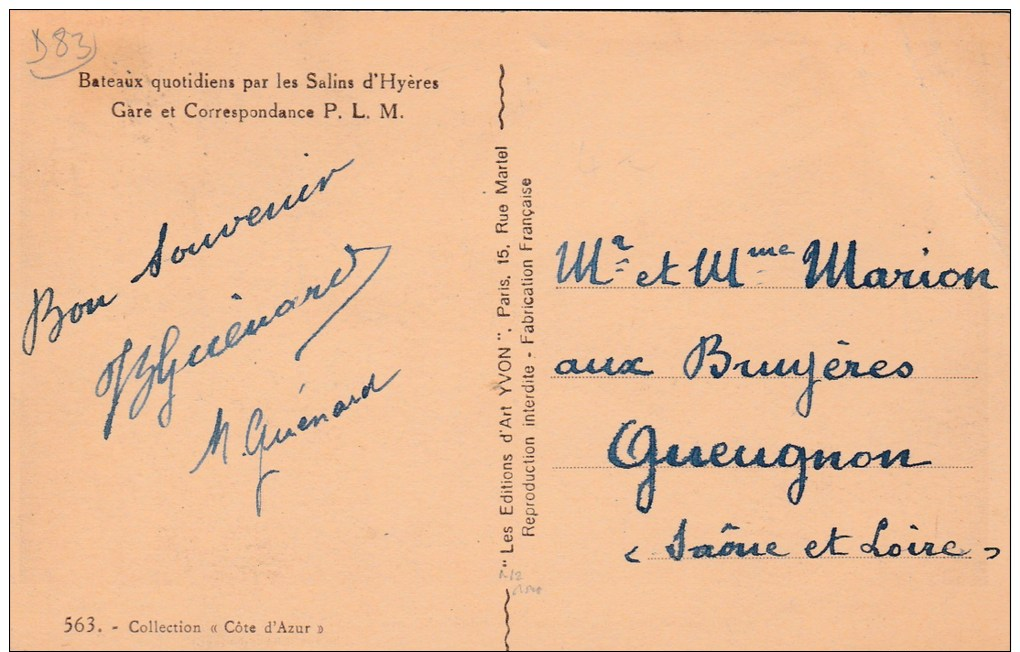 D83
Bateaux quotidiens par les Salins d'Hyères
Gare et Correspondance P. L. M.
Bon Souvenir
Guénard
M. Guénard
563. - Collection « Côte d'Azur »
"Les Editions d'Art YVON", Paris, 15, Rue Martel
Reproduction interdite - Fabrication Française
Mr et Mme Marion
aux Bruyères
Gueugnon
(Saône et Loire)